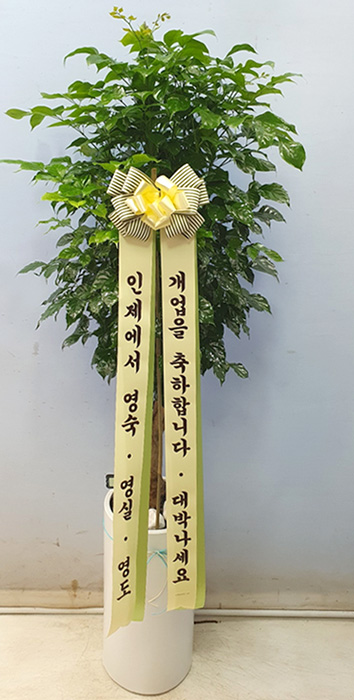 인제에서 영숙 · 영실 · 영도
개업을 축하합니다 · 대박나세요